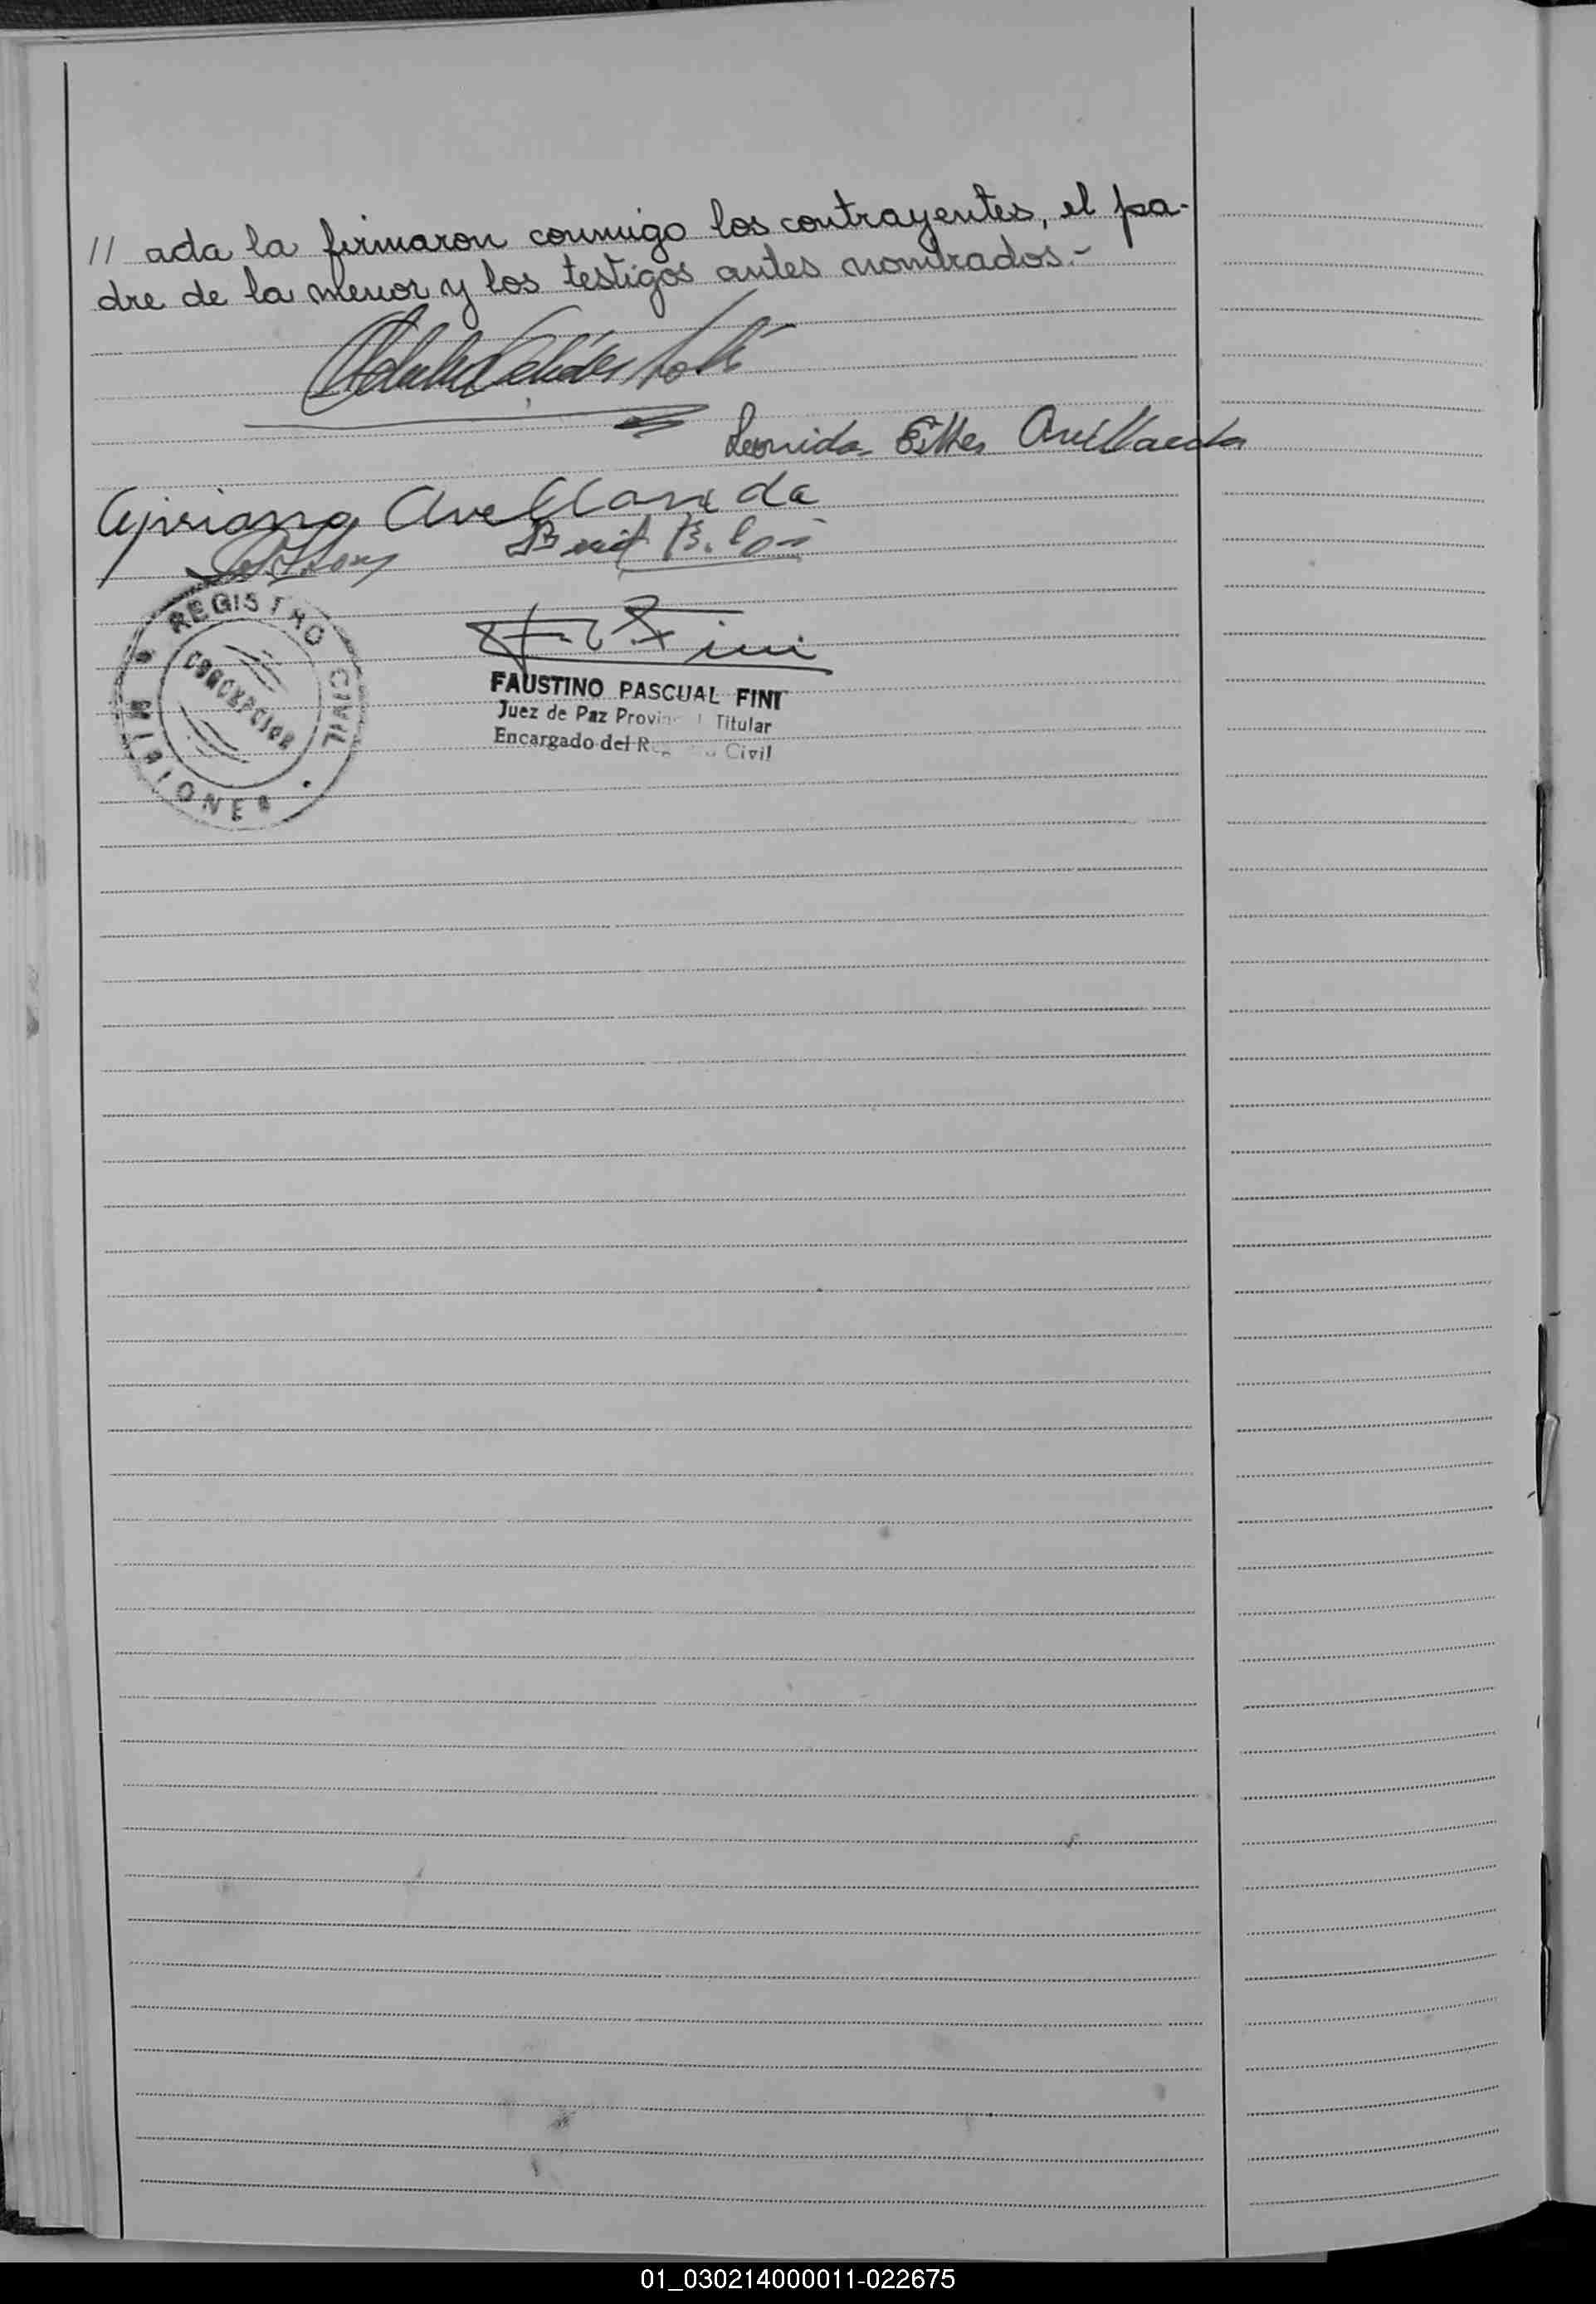 // ada la firmaron conmigo los contrayentes, el pa-
dre de la menor y los testigos antes nombrados.-
Leonida Esther Avellaeda
Cipriano Avellaneda
F. Fini
REGISTRO CIVIL
CONCEPCION
MISIONES
FAUSTINO PASCUAL FINI
Juez de Paz Provincial Titular
Encargado del Registro Civil
01_030214000011-022675